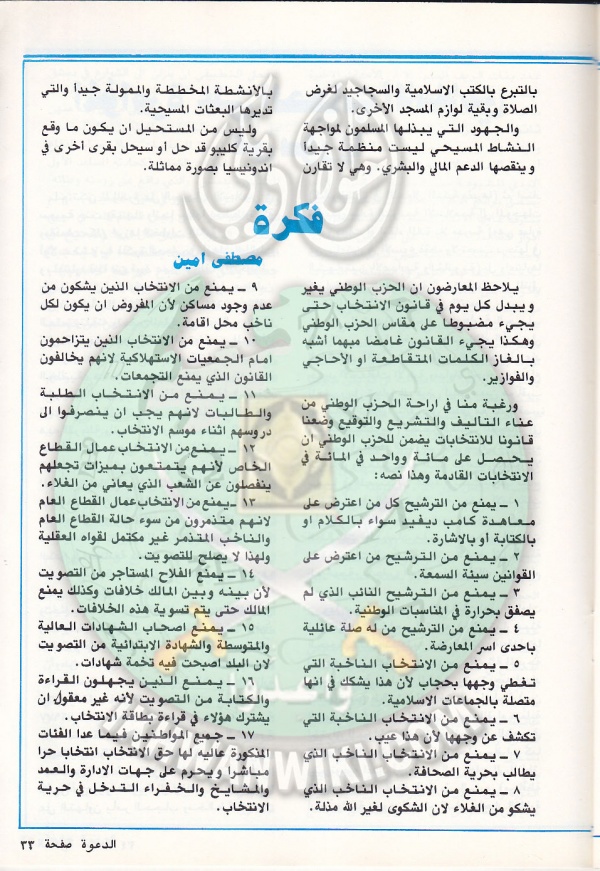 بالتبرع بالكتب الاسلامية والسجاجيد لغرض
الصلاة وبقية لوازم المسجد الأخرى.
والجهود التي يبذلها المسلمون لمواجهة
النشاط المسيحي ليست منظمة جيداً
وينقصها الدعم المالي والبشري. وهي لا تقارن
بالأنشطة المخططة والممولة جيداً والتي
تديرها البعثات المسيحية.
وليس من المستحيل ان يكون ما وقع
بقرية كليبو قد حل أو سيحل بقرى أخرى في
اندونيسيا بصورة مماثلة.
فكرة
مصطفى امين
يلاحظ المعارضون ان الحزب الوطني يغير
ويبدل كل يوم في قانون الانتخاب حتى
يجيء مضبوطاً على مقاس الحزب الوطني
وهكذا يجيء القانون غامضا مبهما أشبه
بالغاز الكلمات المتقاطعة او الأحاجي
والفوازير.
ورغبة منا في اراحة الحزب الوطني من
عناء التاليف والتشريع والتوقيع وضعنا
قانونا للانتخابات يضمن للحزب الوطني ان
يحصل على مائة وواحد في المائة في
الانتخابات القادمة وهذا نصه:
١ ـ يمنع من الترشيح كل من اعترض على
معاهدة كامب ديفيد سواء بالكلام او
بالكتابة أو بالاشارة.
٢ ـ يمنع من الترشيح من اعترض على
القوانين سيئة السمعة.
٣ ـ يمنع من الترشيح النائب الذي لم
يصفق بحرارة في المناسبات الوطنية.
٤ ـ يمنع من الترشيح من له صلة عائلية
باحدى اسر المعارضة.
٥ ـ يمنع من الانتخاب الناخبة التي
تغطي وجهها بحجاب لأن هذا يشكك في انها
متصلة بالجماعات الاسلامية.
٦ ـ يمنع من الانتخاب الناخبة التي
تكشف عن وجهها لأن هذا عيب.
٧ ـ يمنع من الانتخاب الناخب الذي
يطالب بحرية الصحافة.
٨ ـ يمنع من الانتخاب الناخب الذي
يشكو من الغلاء لان الشكوى لغير الله مذلة.
٩ ـ يمنع من الانتخاب الذين يشكون من
عدم وجود مساكن لأن المفروض ان يكون لكل
ناخب محل اقامة.
١٠ ـ يمنع من الانتخاب الذين يتزاحمون
امام الجمعيات الاستهلاكية لانهم يخالفون
القانون الذي يمنع التجمعات.
١١ ـ يمنع من الانتخاب الطلبة
والطالبات لانهم يجب ان ينصرفوا الى
دروسهم اثناء موسم الانتخاب.
١٢ ـ يمنع من الانتخاب عمال القطاع
الخاص لأنهم يتمتعون بميزات تجعلهم
ينفصلون عن الشعب الذي يعاني من الغلاء.
١٣ ـ يمنع من الانتخاب عمال القطاع العام
لانهم متذمرون من سوء حالة القطاع العام
والناخب المتذمر غير مكتمل لقواه العقلية
ولهذا لا يصلح للتصويت.
١٤ ـ يمنع الفلاح المستأجر من التصويت
لأن بينه وبين المالك خلافات وكذلك يمنع
المالك حتى يتم تسوية هذه الخلافات.
١٥ ـ يمنع اصحاب الشهادات العالية
والمتوسطة والشهادة الابتدائية من التصويت
لان البلد اصبحت فيه تخمة شهادات.
١٦ ـ يمنع الذين يجهلون القراءة
والكتابة من التصويت لأنه غير معقول ان
يشترك هؤلاء في قراءة بطاقة الانتخاب.
١٧ ـ جميع المواطنين فيما عدا الفئات
المذكورة عاليه لها حق الانتخاب انتخابا حرا
مباشرا ويحرم على جهات الادارة والعمد
والمشايخ والخفراء التدخل في حرية
الانتخاب.
الدعوة صفحة ٣٣